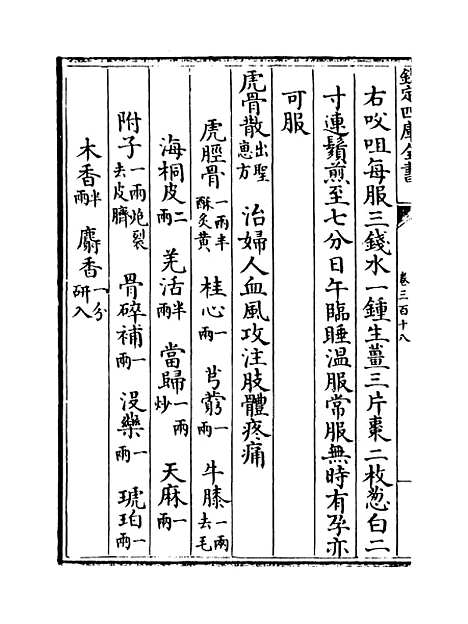 欽定四庫全書
卷三百十八
右㕮咀每服三錢水一鍾生薑三片棗二枚葱白二
寸連鬚煎至七分日午臨睡温服常服無時有孕亦
可服
虎骨散出聖惠方 治婦人血風攻注肢體疼痛
虎脛骨一兩半酥炙黄 桂心一兩 芎藭一兩 牛膝一兩去毛
海桐皮二兩 羌活半兩 當歸一兩炒 天麻一兩
附子一兩炮裂去皮臍 骨碎補一兩 沒藥一兩 琥珀一兩
木香半兩 麝香一分研入